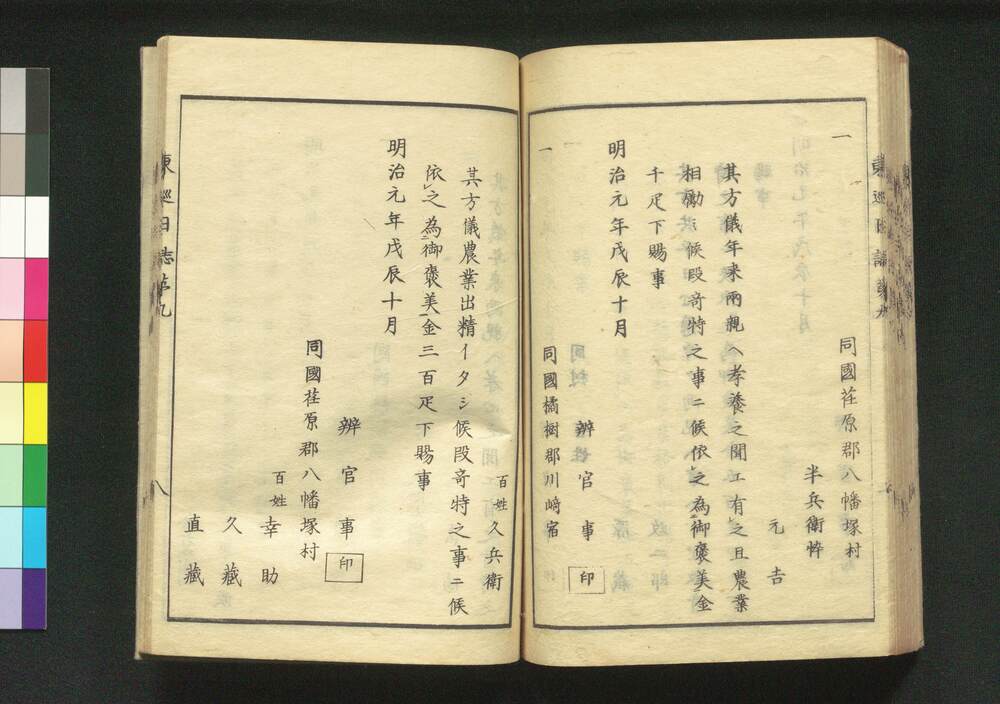 一
同國荏原郡八幡塚村
半兵衛悴
元吉
其方儀年来兩親ヘ孝養之聞エ有之且農業
相勵候段奇特之事ニ候依之為御褒美金
千疋下賜事
明治元年戊辰十月
辨官事 印
一
同國橘樹郡川﨑宿
百姓 久兵衛
其方儀農業出精イタシ候段奇特之事ニ候
依之為御褒美金三百疋下賜事
明治元年戊辰十月
辨官事 印
同國荏原郡八幡塚村
百姓 幸助
久藏
直藏
東巡日誌第九
八